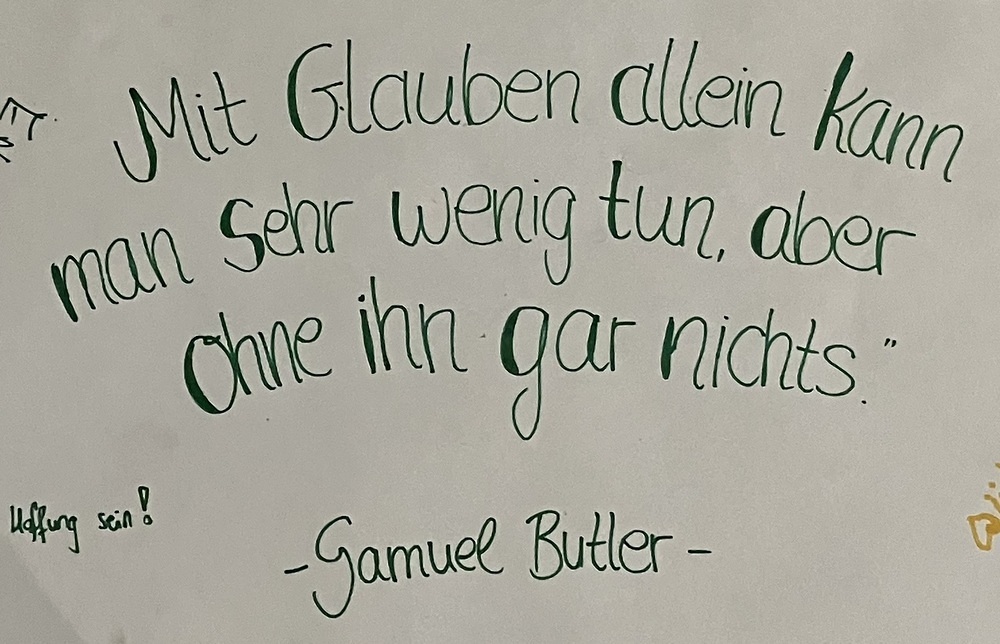 Mit Glauben allein kann
man sehr wenig tun, aber
ohne ihn gar nichts."
Hoffung sein!
-Samuel Butler-